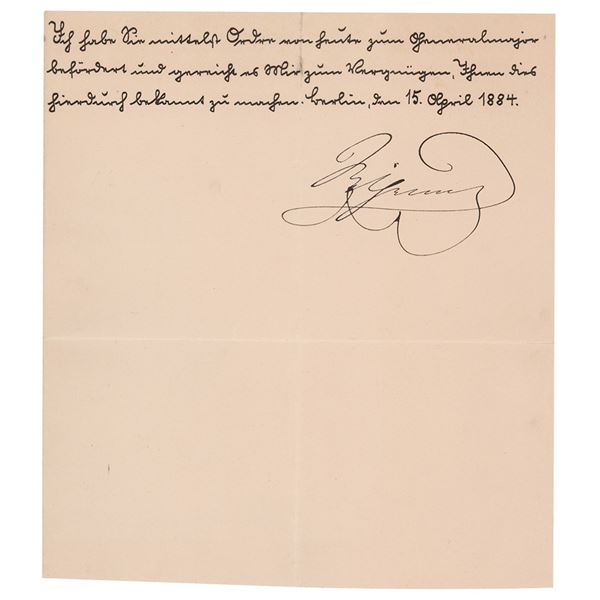 Ich habe Sie mittelst Ordre von heute zum Generalmajor
befördert und gereicht es Mir zum Vergnügen, Ihnen dies
hierdurch bekannt zu machen. Berlin, den 15. April 1884.
Wilhelm